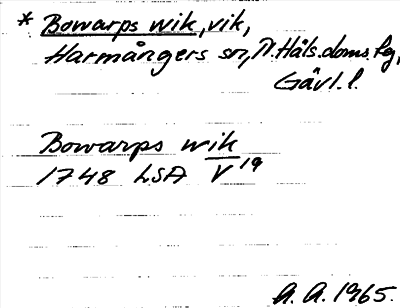 * Bowarps wik, vik,
Harmångers sn, N. Häls. doms. lg,
Gävl. l.
Bowarps wik
1748 LSA V 19
A. A. 1965.